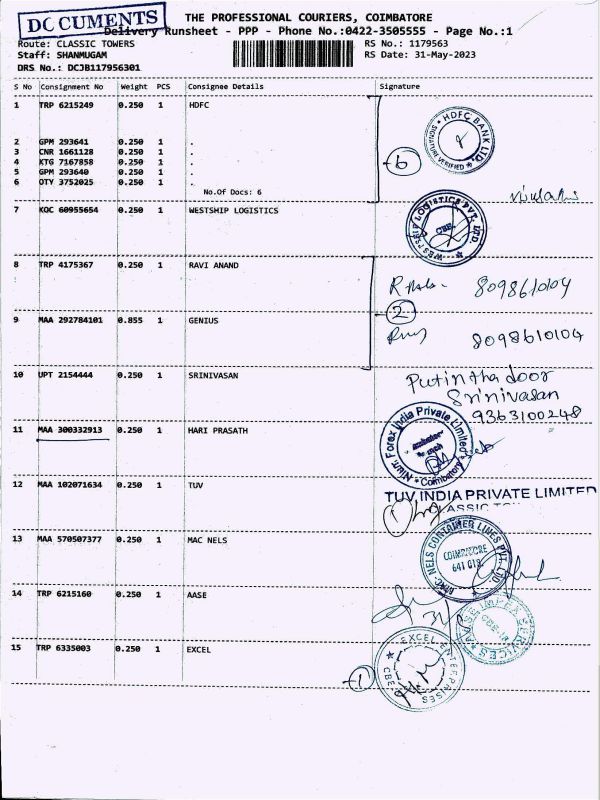 DOCUMENTS
THE PROFESSIONAL COURIERS, COIMBATORE
Delivery Runsheet - PPP - Phone No.:0422-3505555 - Page No.:1
Route: CLASSIC TOWERS
RS No.: 1179563
Staff: SHANMUGAM
RS Date: 31-May-2023
DRS No.: DCJB117956301
S No Consignment No Weight PCS Consignee Details Signature
1 TRP 6215249 0.250 1 HDFC
HDFC BANK LTD.
VERIFIED
2 GPM 293641 0.250 1 .
3 CNR 1661128 0.250 1 .
4 KTG 7167858 0.250 1 .
5 GPM 293640 0.250 1 .
6 OTY 3752025 0.250 1 .
6
No.Of Docs: 6
7 KOC 60955654 0.250 1 WESTSHIP LOGISTICS
WESTSHIP LOGISTICS PVT. LTD.
CBE
8 TRP 4175367 0.250 1 RAVI ANAND
8098610104
2
9 MAA 292784101 0.855 1 GENIUS
8098610104
10 UPT 2154444 0.250 1 SRINIVASAN
Put in tha door
Srinivasan
9363100248
11 MAA 300332913 0.250 1 HARI PRASATH
Forex India Private Limited
Coimbatore
12 MAA 102071634 0.250 1 TUV
TUV INDIA PRIVATE LIMITED
1
13 MAA 570507377 0.250 1 MAC NELS
MAC NELS CONTAINER LINES PVT. LTD
COIMBATORE
641 018
14 TRP 6215160 0.250 1 AASE
15 TRP 6335003 0.250 1 EXCEL
EXCEL ENTERPRISES
CBE
1